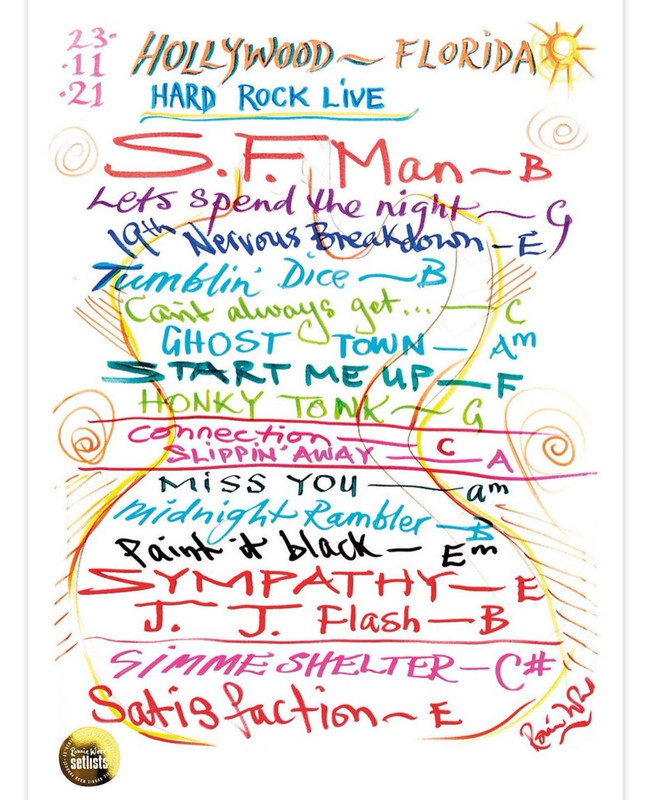 23·
HOLLYWOOD ~ FLORIDA
·11
·21
HARD ROCK LIVE
S.F. Man ~ B
Lets spend the night ~ G
19th Nervous Breakdown - E
Tumblin' Dice ~ B
Can't always get... — C
GHOST TOWN — Am
START ME UP — F
HONKY TONK ~ G
Connection — C
SLIPPIN' AWAY — A
MISS YOU — am
Midnight Rambler — B
Paint it black — Em
SYMPATHY — E
J. J. Flash — B
GIMME SHELTER — C#
Satisfaction ~ E
Ronnie Wood
Ronnie Wood
setlists